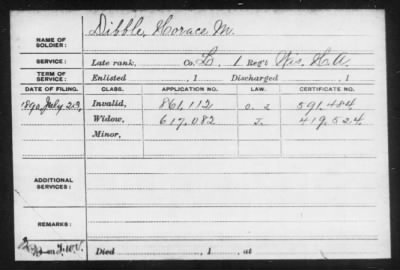 Dibble, Horace M.
NAME OF SOLDIER:
SERVICE: Late rank, Co. L. 1 Reg't Wis. H.A.
TERM OF SERVICE: Enlisted , 1 Discharged , 1
DATE OF FILING. CLASS. APPLICATION NO. LAW. CERTIFICATE NO.
1890 July 23, Invalid, 861,112 591,484
Widow, 617,082 419,524
Minor,
ADDITIONAL SERVICES:
REMARKS:
Died , 1 , at